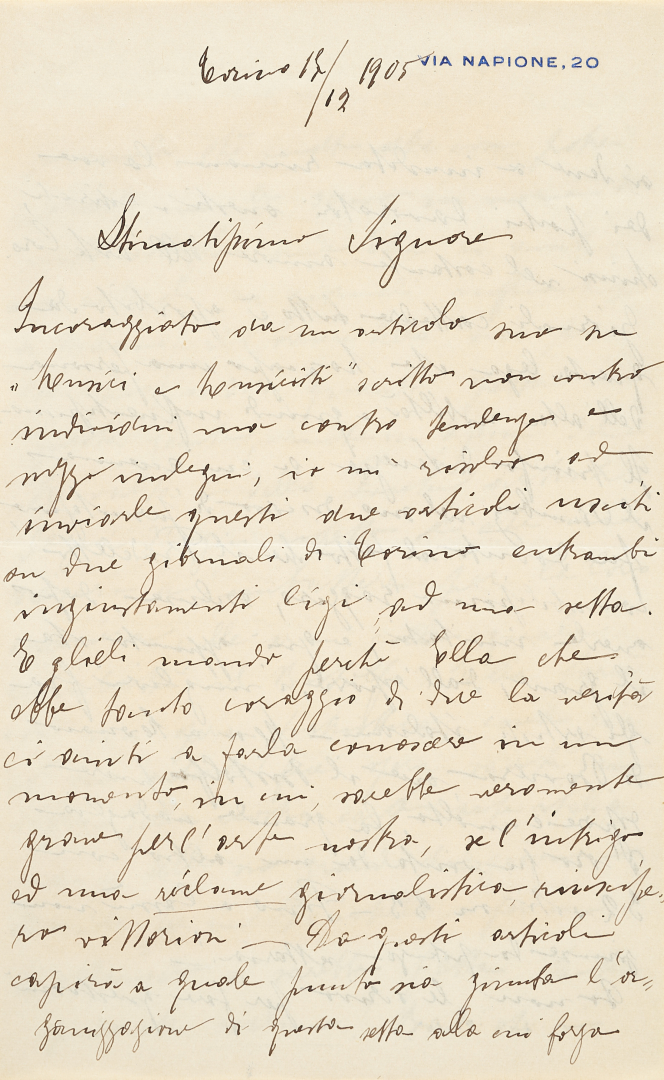 Torino 12/12 1905 VIA NAPIONE, 20
Stimatissimo Signore
Incoraggiato da un articolo suo su
"Musici e Musicisti" scritto non contro
individui ma contro tendenze e
mezzi indegni, io mi risolvo ad
inviarle questi due articoli usciti
su due giornali di Torino entrambi
ingiustamenti ligi ad una setta.
E glieli mando perchè Ella che
ebbe tanto coraggio di dire la verità
ci aiuti a farla conoscere in un
momento, in cui, sarebbe veramente
grave per l'arte nostra, se l'intrigo
ed una réclame giornalistica, riuscisse-
ro vittoriosi — Da questi articoli
capirà a quale punto sia giunta l'or-
ganizzazione di questa setta alla cui forza